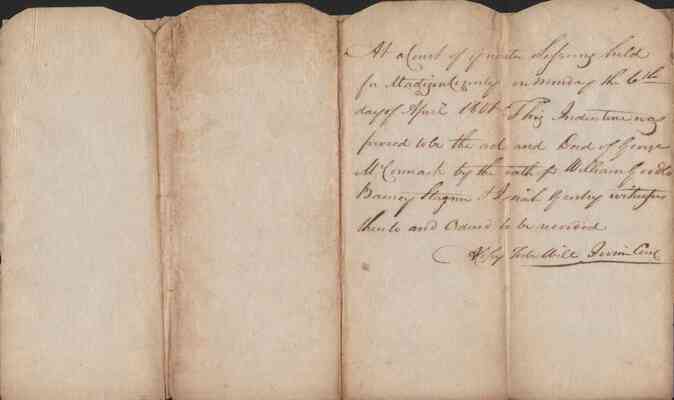 At a Court of Quarter Sessions held
for Madison County on monday the 6th
day of April 1801 This Indenture was
proved to be the act and Deed of George
McCormack by the oath of William Goodlo
Barney Stagner & Josiah Gentry witnesses
thereto and Ordered to be recorded
Teste Will Irvin